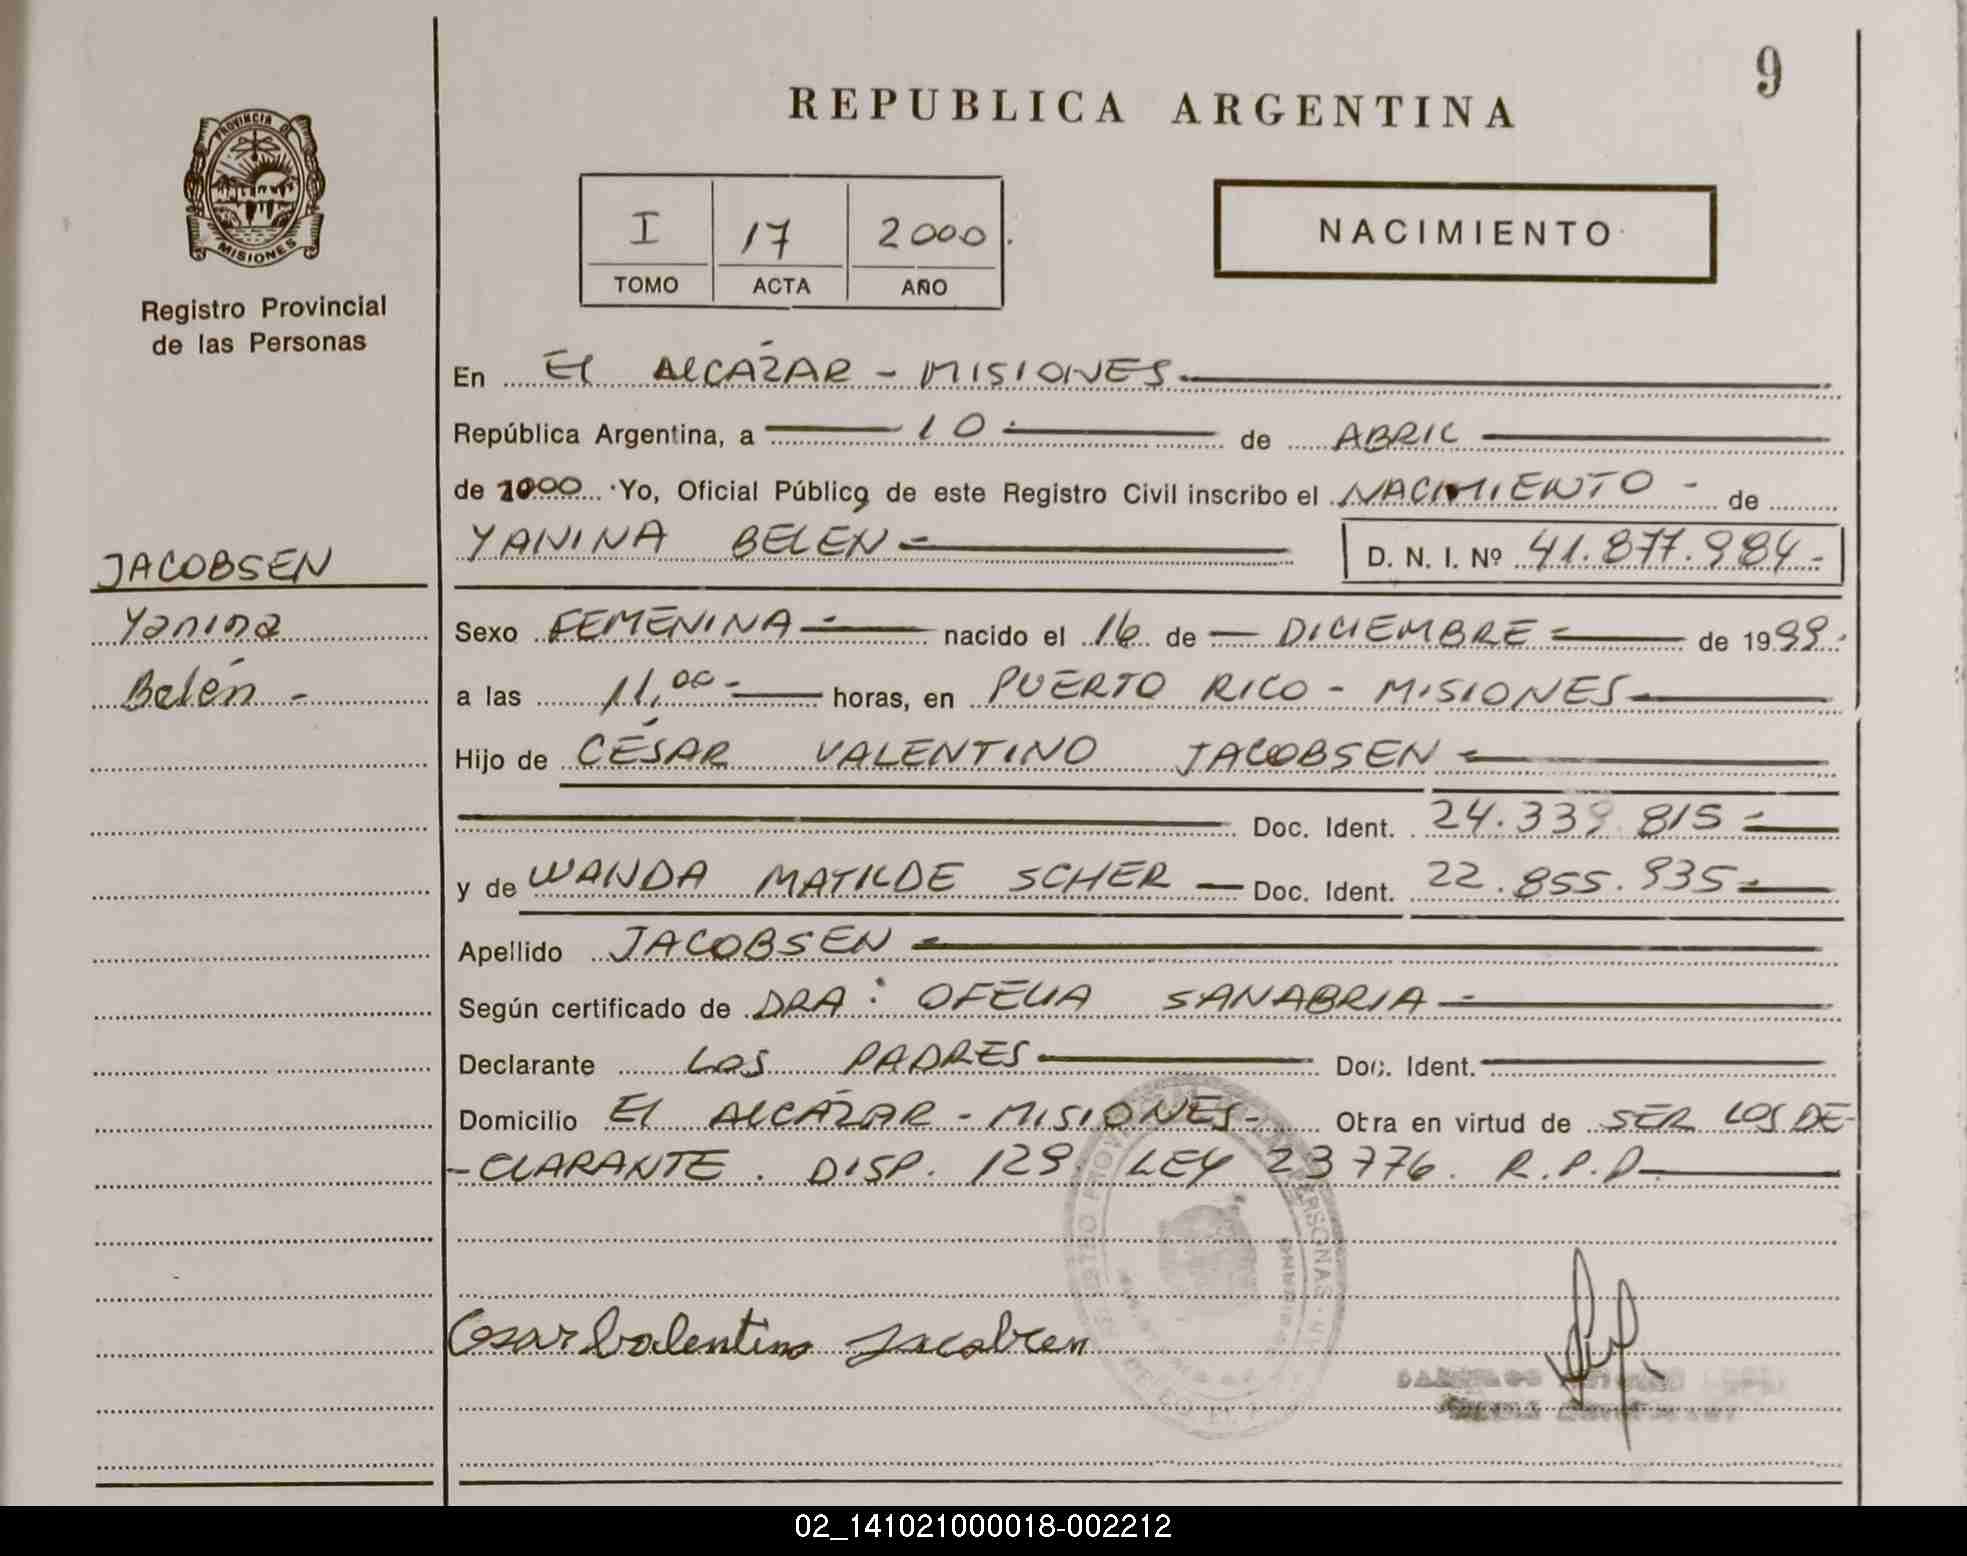 9
REPUBLICA ARGENTINA
PROVINCIA DE
MISIONES
Registro Provincial
de las Personas
I 17 2000.
TOMO ACTA AÑO
NACIMIENTO
En El ALCÁZAR - MISIONES
República Argentina, a 10 de ABRIL
de 2000 Yo, Oficial Público, de este Registro Civil inscribo el NACIMIENTO - de
JACOBSEN
Yanina
Belén -
YANINA BELEN D. N. I. Nº 41.877.984-
Sexo FEMENINA nacido el 16 de DICIEMBRE de 1999.
a las 11,00 horas, en PUERTO RICO - MISIONES
Hijo de CÉSAR VALENTINO JACOBSEN
Doc. Ident. 24.339.815
y de WANDA MATILDE SCHER Doc. Ident. 22.855.935
Apellido JACOBSEN
Según certificado de DRA: OFELIA SANABRIA
Declarante LOS PADRES Doc. Ident.
Domicilio El ALCÁZAR - MISIONES- Otra en virtud de SER LOS DE-
-CLARANTE. DISP. 129 LEY 23776. R.P.P.
Cesar Valentino Jacobsen
02_141021000018-002212